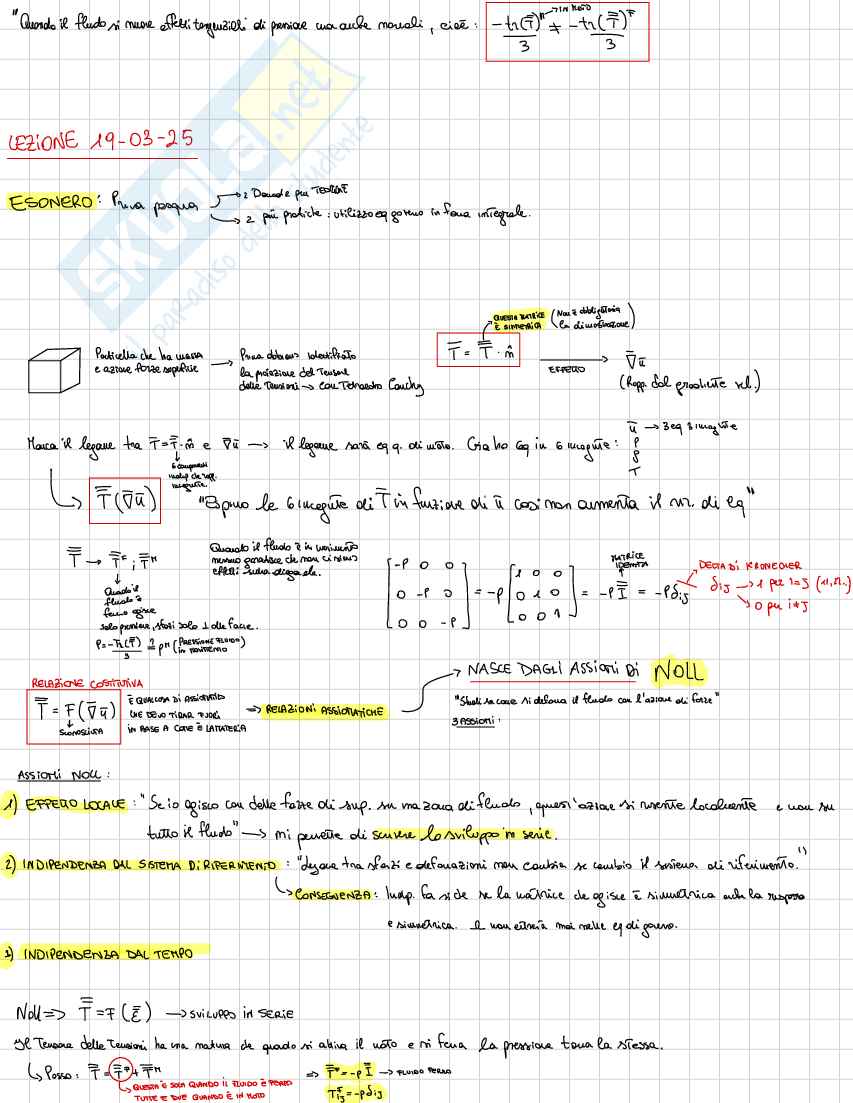 "Quando il fluido si muove effetti tangenziali di pressione ma anche normali, cioè: -tr(T̿)ᴹ/3 ≠ -tr(T̿)ꟳ/3
IN MOTO
LEZIONE 19-03-25
ESONERO: Prima pasqua → 2 Domande più TEORICHE
→ 2 più pratiche: utilizzo eq governo in forma integrale.
SKUOLA.net
il paradiso dello studente
QUESTA MATRICE È SIMMETRICA (Non è obbligatoria la dimostrazione)
Particella che ha massa e azione forze superficie → Prima abbiamo identificato la proiezione del Tensore delle Tensioni → con Tetraedro Cauchy
T̅ = T̿ · n̂ EFFETTO → ∇̅u̅
(Roppa dal gradiente vel.)
Manca il legame tra T̅ = T̿·n̂ e ∇̅u̅ → il legame sarà eq q. di moto. Già ho 6q in 6 incognite: u̅ → 3 eq 3 incognite
p
ρ
T
6 componenti
incognite.
→ T̿(∇̅u̅) "Esprimo le 6 incognite di T̿ in funzione di u̅ così non aumenta il nr. di eq"
T̿ → T̿ꟳ ; T̿ᴹ
Quando il fluido è in movimento nessuno garantisce che non ci siano effetti fuori diagonale.
Quando il fluido è fermo agisce solo pressione, sforzi solo ⊥ alle facce.
P = -Tr(T̿)/3 ≟ pᴹ (PRESSIONE FLUIDO IN MOVIMENTO)
[-p 0 0
0 -p 0
0 0 -p] = -p [1 0 0
0 1 0
0 0 1] = -p I̿ = -p δij
MATRICE IDENTITÀ
DELTA DI KRONECKER
δij → 1 per i=j (11, 22..)
→ 0 per i≠j
RELAZIONE COSTITUTIVA
T̿ = F(∇̅u̅)
SCONOSCIUTA
È QUALCOSA DI ASSIOMATICO CHE DEVO TIRAR FUORI IN BASE A COME È LA MATERIA
⇒ RELAZIONI ASSIOMATICHE
→ NASCE DAGLI ASSIOMI DI NOLL
"Studia come si deforma il fluido con l'azione di forze"
3 ASSIOMI:
ASSIOMI NOLL:
1) EFFETTO LOCALE: "Se io agisco con delle forze di sup. su ma zona di fluido, quest'azione si risente localmente e non su
tutto il fluido" → mi permette di scrivere lo sviluppo in serie.
2) INDIPENDENZA DAL SISTEMA DI RIFERIMENTO: "legame tra sforzi e deformazioni non cambia se cambio il sistema di riferimento."
→ CONSEGUENZA: Indip. fa sì che se la matrice che agisce è simmetrica anche la risposta
è simmetrica. E non entrerà mai nelle eq di governo.
3) INDIPENDENZA DAL TEMPO
Noll ⇒ T̿ = F(ε̿) → SVILUPPO IN SERIE
Il Tensore delle Tensioni ha una natura che quando si attiva il moto e si ferma la pressione torna la stessa.
→ Posso: T̿ = T̿ꟳ + T̿ᴹ ⇒ T̿ꟳ = -p I̿ → FLUIDO FERMO
→ QUESTA È SOLA QUANDO IL FLUIDO È FERMO
TUTTE E DUE QUANDO È IN MOTO
Tijꟳ = -pδij